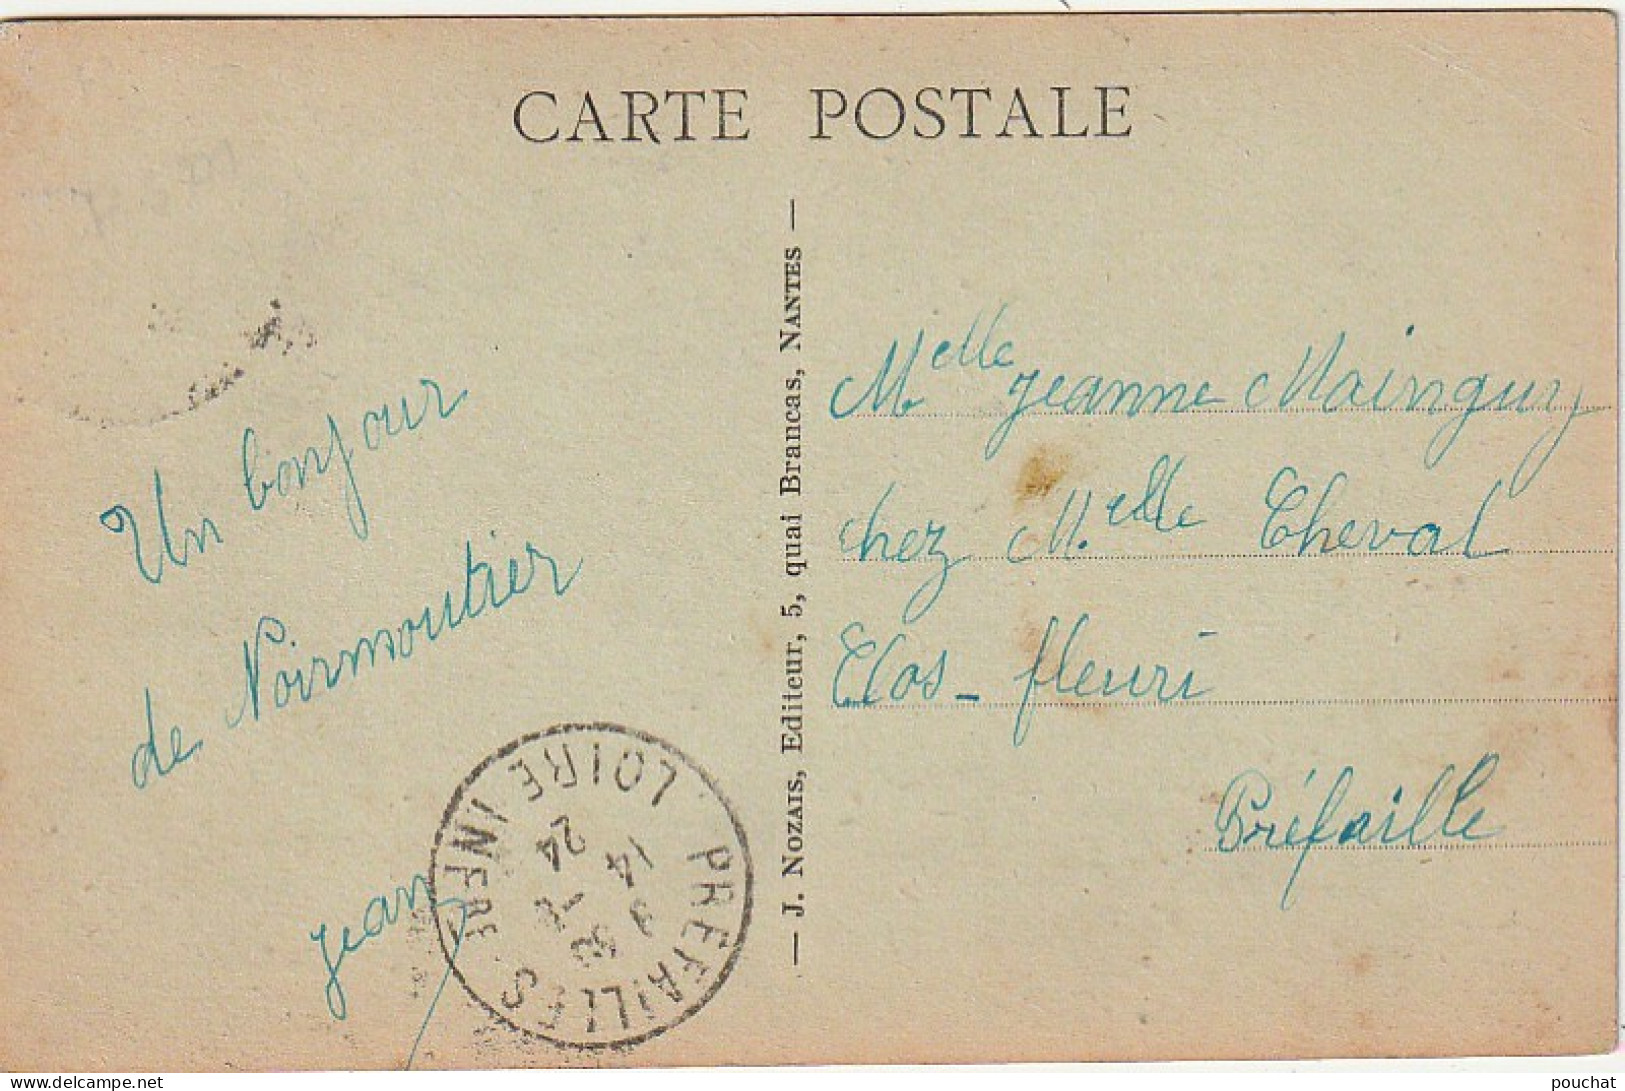 CARTE POSTALE
Un bonjour
de Noirmoutier
jean
— J. NOZAIS, Editeur, 5, quai Brancas, NANTES —
Melle jeanne Mainguy
chez Melle Cheval
Clos - fleuri
Préfaille
PREFAILLES
LOIRE INFRE
14
24
delcampe.net
pouchat